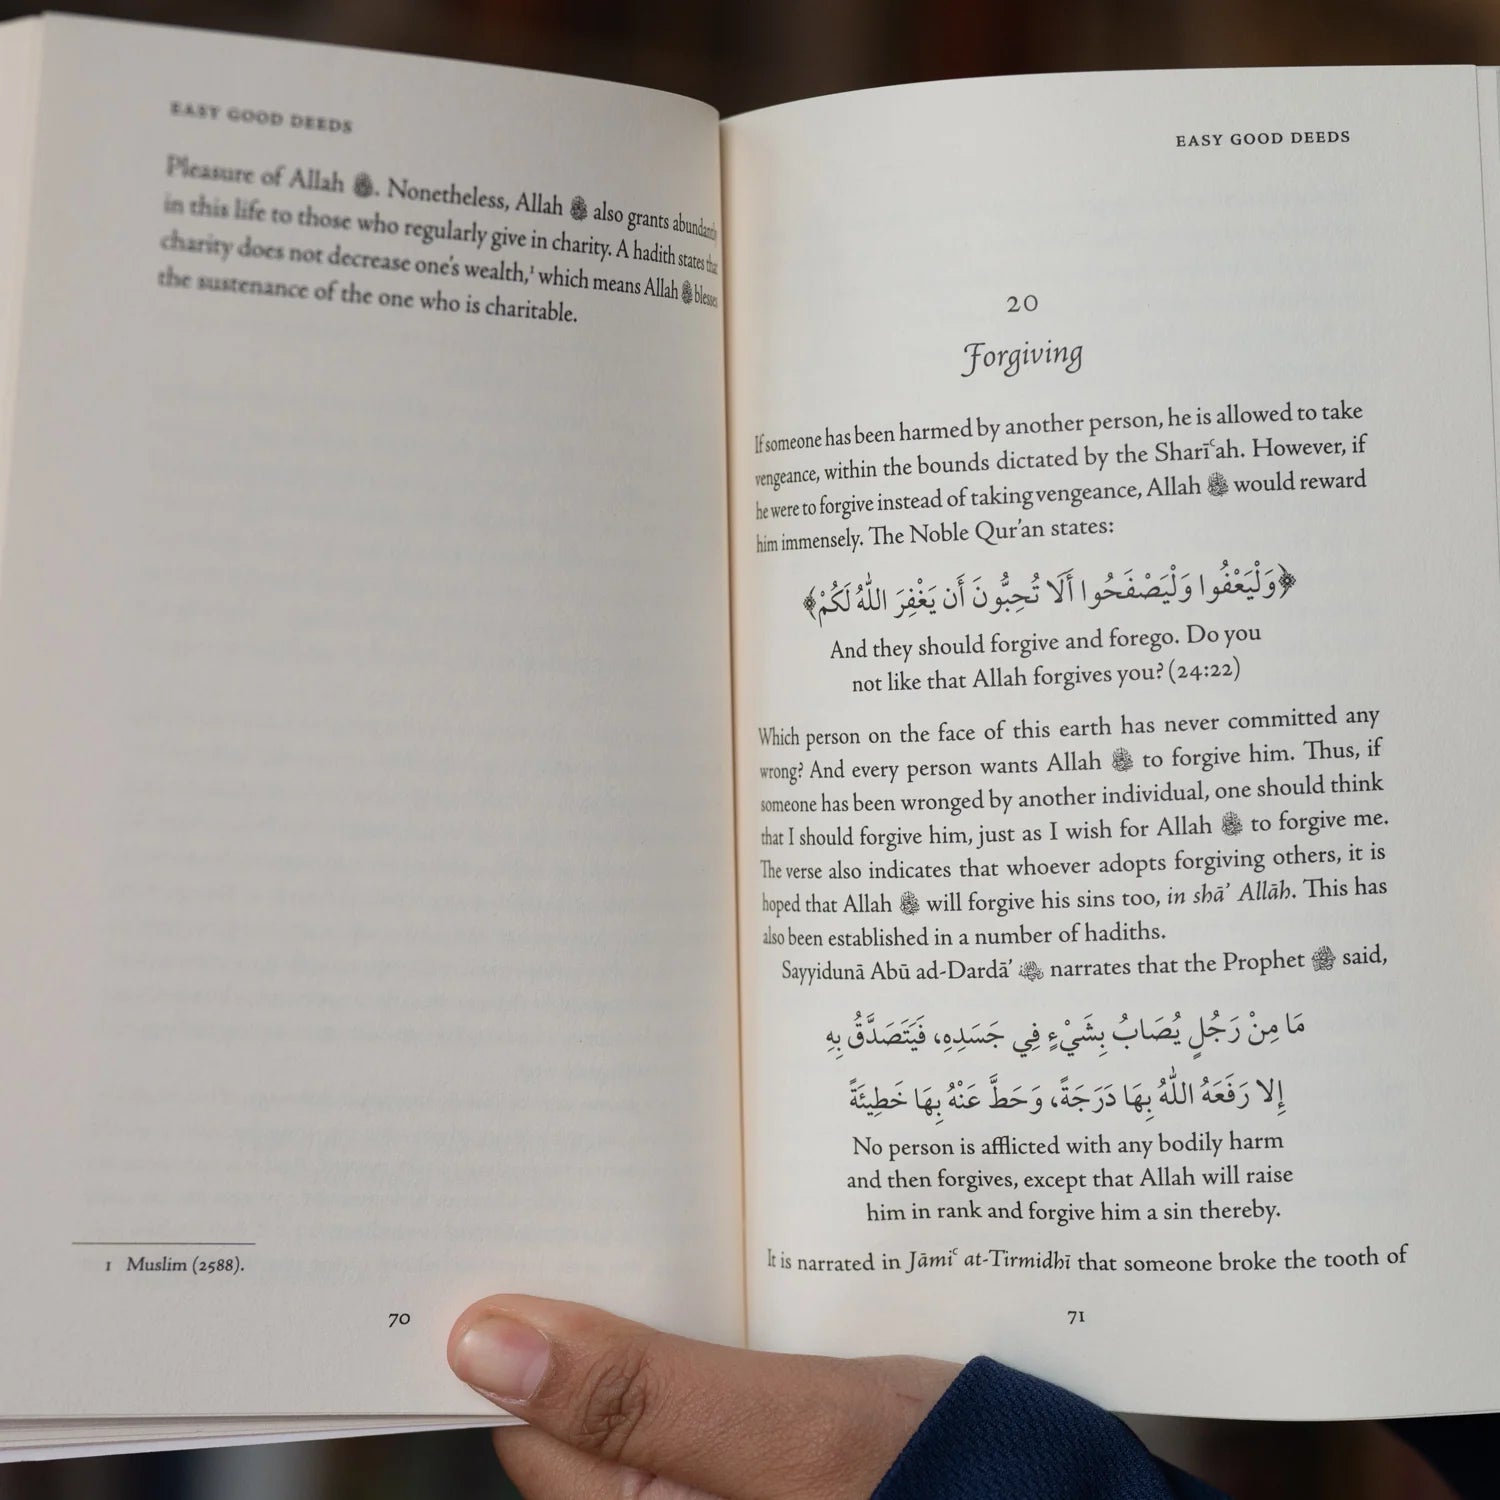 EASY GOOD DEEDS
Pleasure of Allah ﷻ. Nonetheless, Allah ﷻ also grants abundantly
in this life to those who regularly give in charity. A hadith states that
charity does not decrease one's wealth,¹ which means Allah ﷻ blesses
the sustenance of the one who is charitable.
1 Muslim (2588).
70
EASY GOOD DEEDS
20
Forgiving
If someone has been harmed by another person, he is allowed to take
vengeance, within the bounds dictated by the Sharīʿah. However, if
he were to forgive instead of taking vengeance, Allah ﷻ would reward
him immensely. The Noble Qur'an states:
﴿وَلْيَعْفُوا وَلْيَصْفَحُوا أَلَا تُحِبُّونَ أَن يَغْفِرَ اللَّهُ لَكُمْ﴾
And they should forgive and forego. Do you
not like that Allah forgives you? (24:22)
Which person on the face of this earth has never committed any
wrong? And every person wants Allah ﷻ to forgive him. Thus, if
someone has been wronged by another individual, one should think
that I should forgive him, just as I wish for Allah ﷻ to forgive me.
The verse also indicates that whoever adopts forgiving others, it is
hoped that Allah ﷻ will forgive his sins too, in shā' Allāh. This has
also been established in a number of hadiths.
Sayyidunā Abū ad-Dardā' narrates that the Prophet ﷺ said,
مَا مِنْ رَجُلٍ يُصَابُ بِشَيْءٍ فِي جَسَدِهِ، فَيَتَصَدَّقُ بِهِ
إِلا رَفَعَهُ اللَّهُ بِهَا دَرَجَةً، وَحَطَّ عَنْهُ بِهَا خَطِيئَةً
No person is afflicted with any bodily harm
and then forgives, except that Allah will raise
him in rank and forgive him a sin thereby.
It is narrated in Jāmiʿ at-Tirmidhī that someone broke the tooth of
71